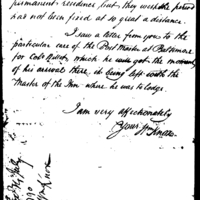 permanent residence, but, they
has not been fixed at so great a distance.
I saw a letter from you to the
particular care of the Post Master at Baltimore
for which he will get the moment
of his arrival there, it being left with the
Master of the Inn where he was to lodge.
I am very affectionately
Yours